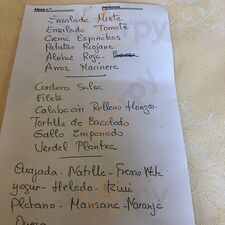 Mesa n.º Personas
Ensalada Mixta
Ensalada Tomate
Crema Espinacas
Patatas Riojana
Alubia Roja
Arroz Marinera
Cordero Salsa
Filete
Calabacin Relleno Hongo
Tortilla de Bacalado
Gallo Empanado
Verdel Plantxa
Cuajada - Natilla - Fresas Nata
yogur - Helado - Kiwi
Platano - Manzana - Naranja